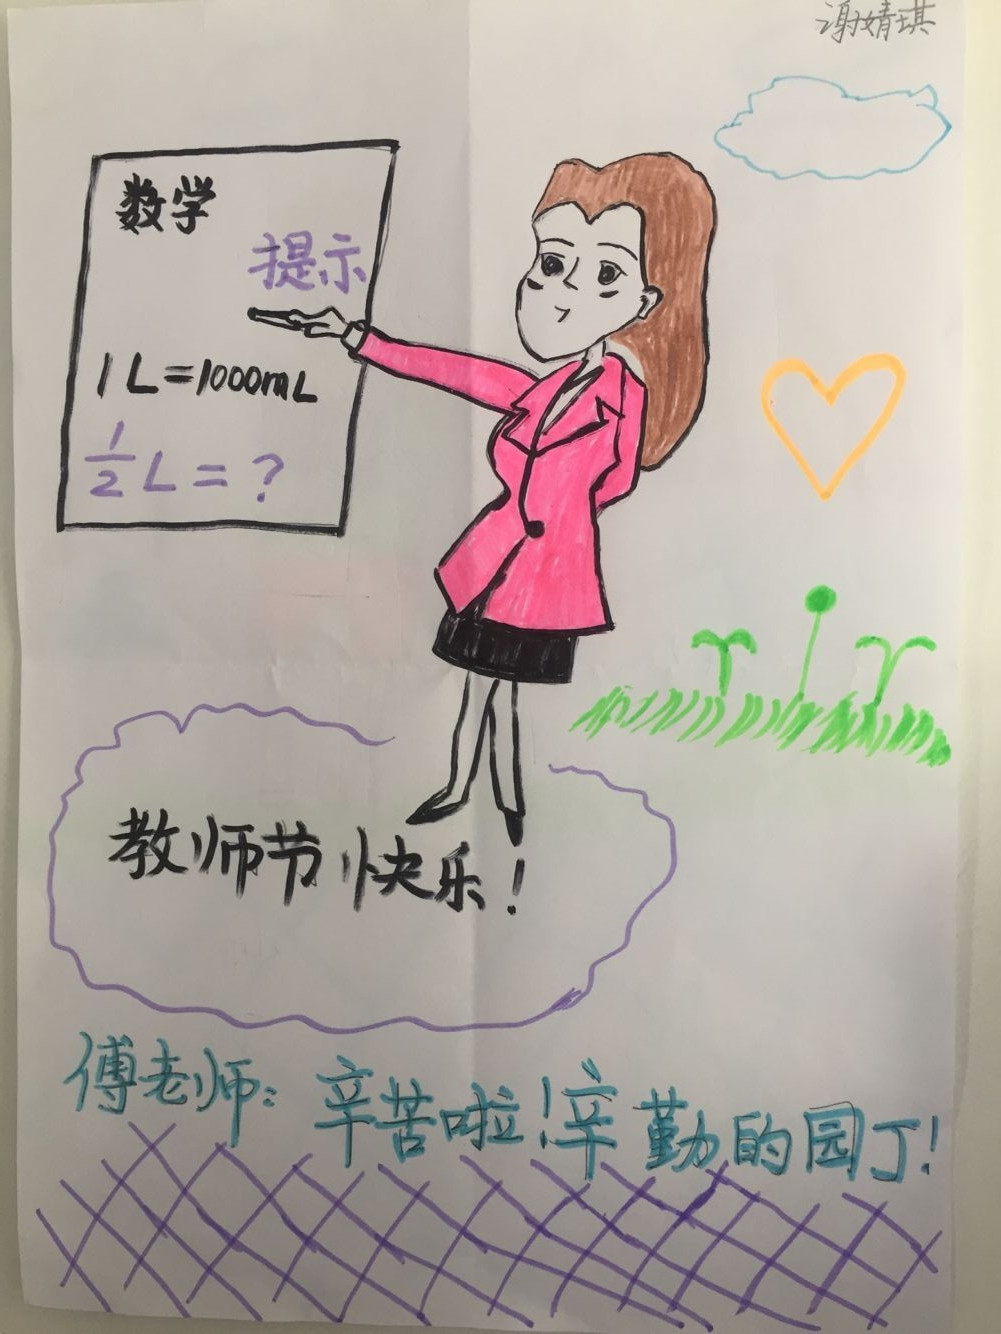 谢婧琪
数学
提示
1L=1000mL
1/2 L=?
教师节快乐!
傅老师:辛苦啦!辛勤的园丁!